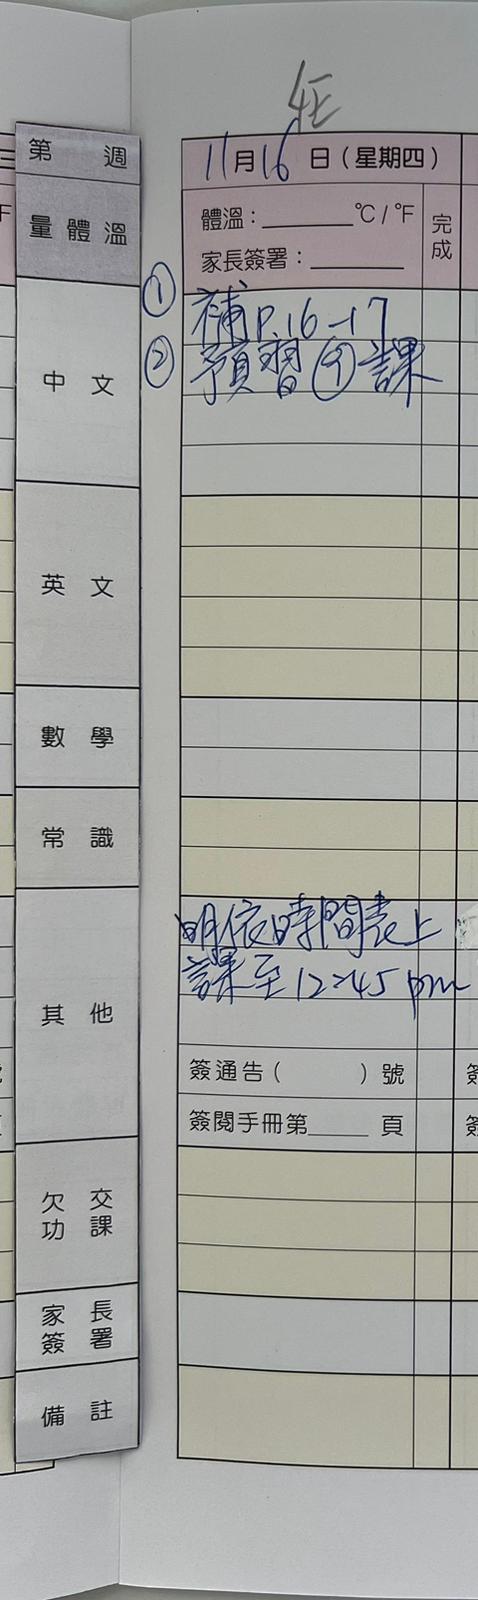 4E
11月16日(星期四)
第 週
體溫：______℃/℉
完成
量體溫
家長簽署：______
① 補P.16-17
② 預習⑨課
中文
英文
數學
常識
明依時間表上
課至12:45 pm
其他
簽通告( )號
簽閱手冊第____頁
欠交
功課
家長
簽署
備註